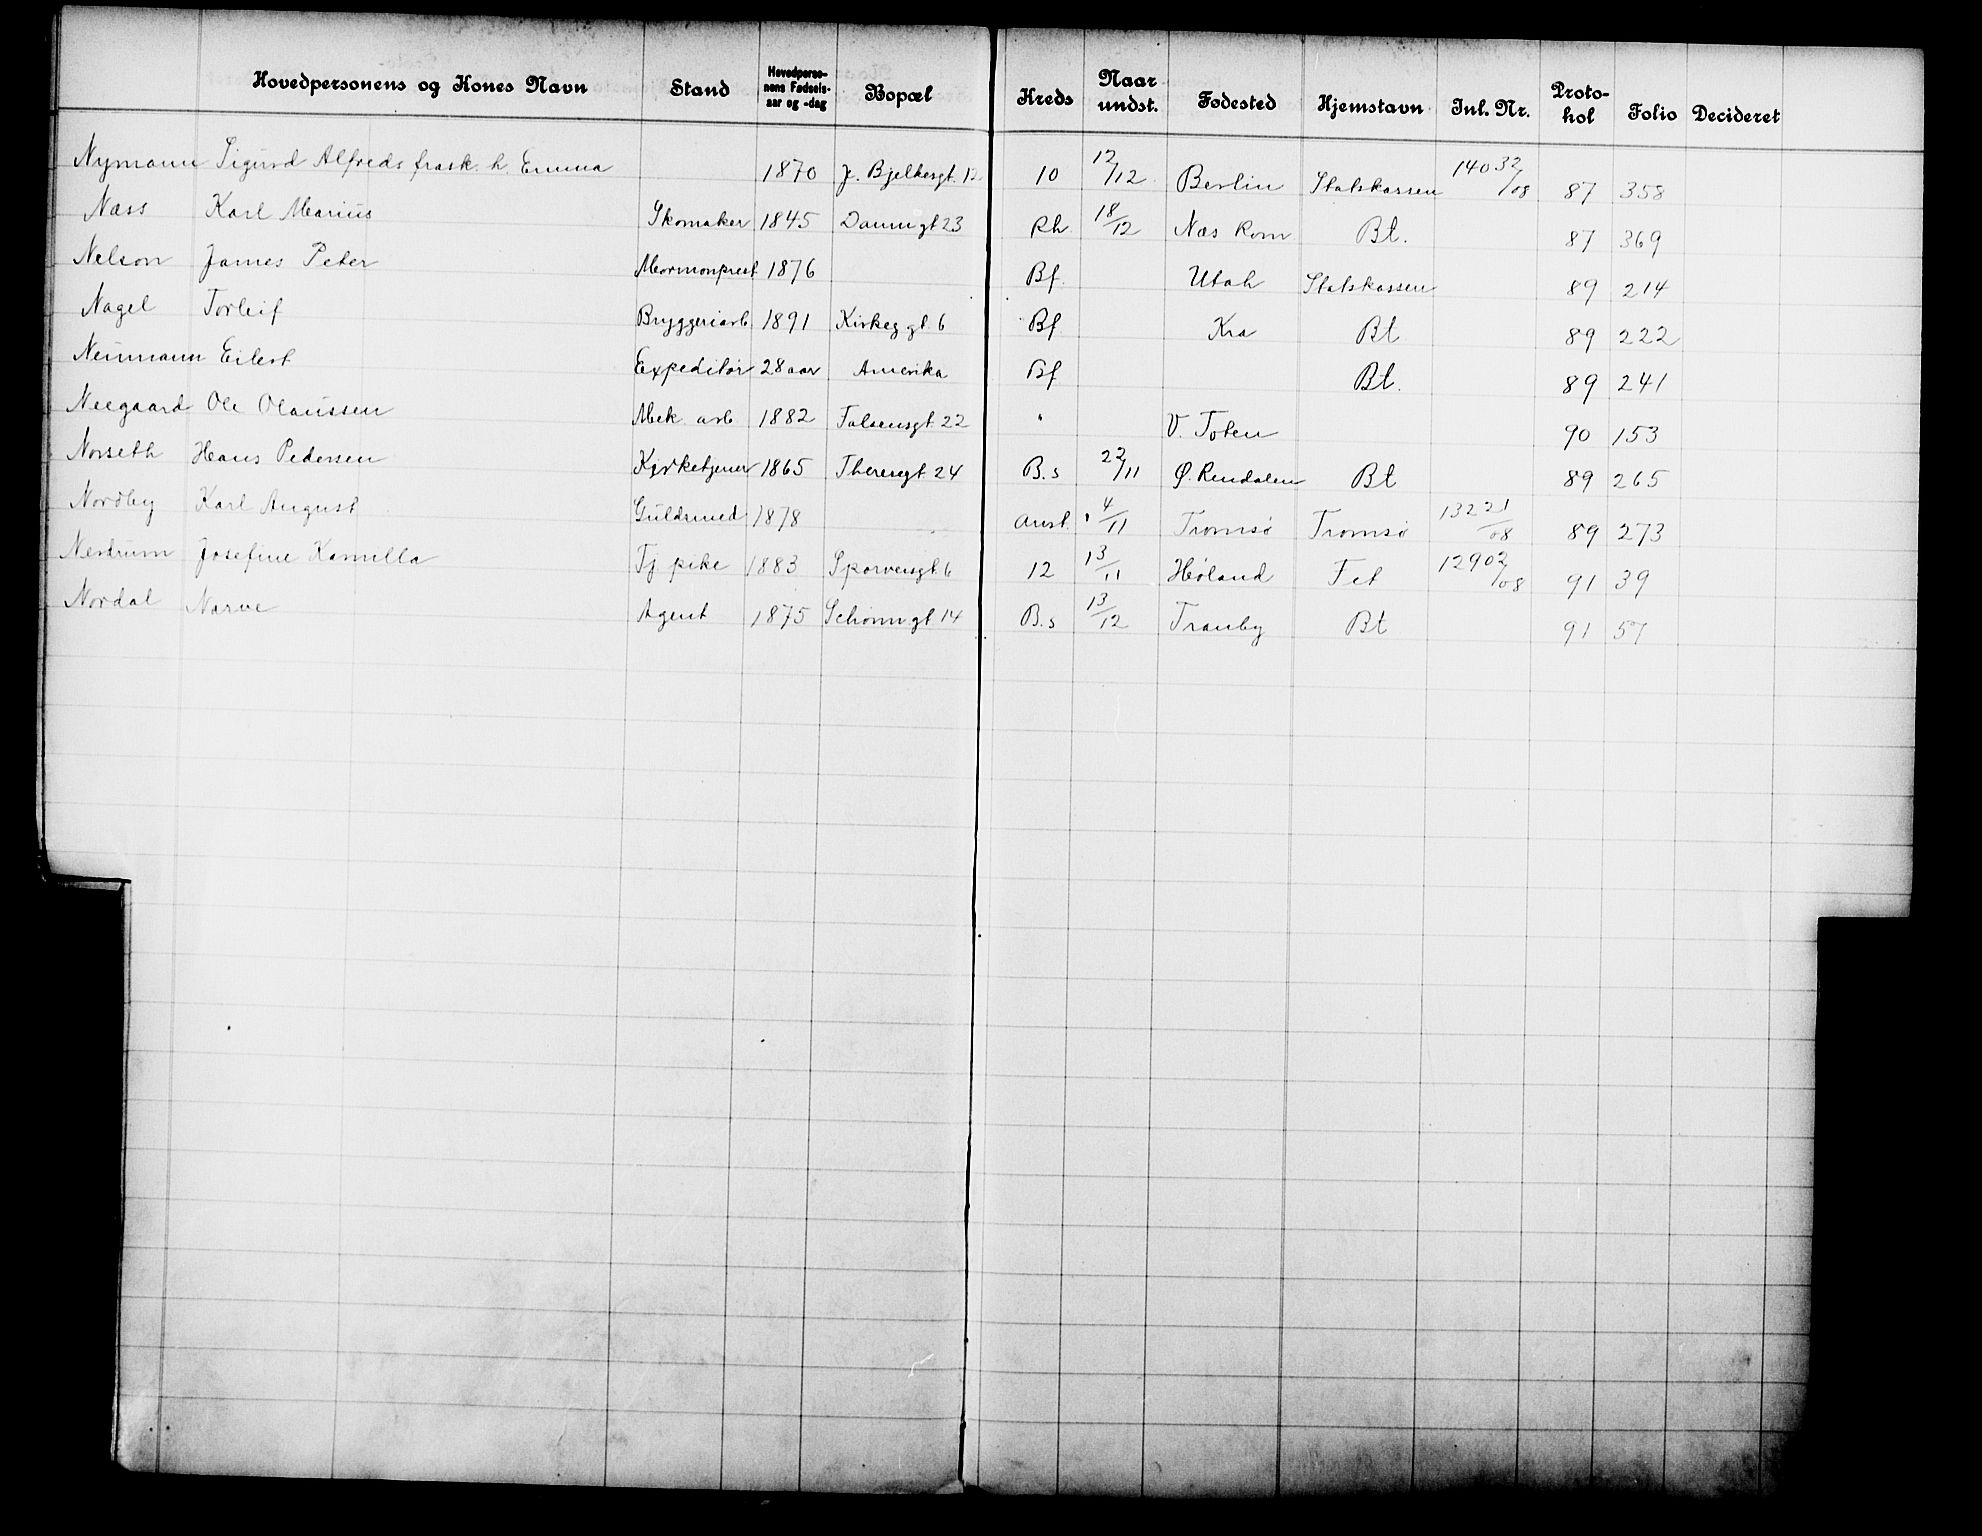 Hovedpersonens og Kones Navn Stand Hovedperso-nens Fødsels-aar og -dag Bopæl Kreds Naar undst. Fødested Hjemstavn Inl. Nr. Proto-kol Folio Decideret
Nymann Sigurd Alfreds frask. h. Emma 1870 J. Bjelkesgt. 12 10 12/12 Berlin Statskassen 14032/08 87 358
Næss Karl Marius Skomaker 1845 Dannigt 23 Rh 18/12 Næs Rom Bt. 87 369
Nelson James Peter Mormonprest 1876 Bf. Utah Statskassen 89 214
Nagel Torleif Bryggeriarb. 1891 Kirkeg gt. 6 Bf. Kra Bt 89 222
Neumann Eilert Expeditør 28 aar Amerika Bf Bt. 89 241
Neegaard Ole Olaussen Mek. arb. 1882 Falsensgt. 22 " V. Toten 90 153
Norseth Hans Pedersen Kirketjener 1865 Theresgt 24 B.s 22/11 Ø. Rendalen Bt 89 265
Nordby Karl August Guldsmed 1878 Anst. 4/11 Tromsø Tromsø 13221/08 89 273
Nerdrum Josefine Kamilla Tj. pike 1883 Sporveisgt. 6 12 13/11 Høland Fet 12902/08 91 39
Nordal Narve Agent 1875 Schønngt 14 B.s 13/12 Tranby Bt 91 57